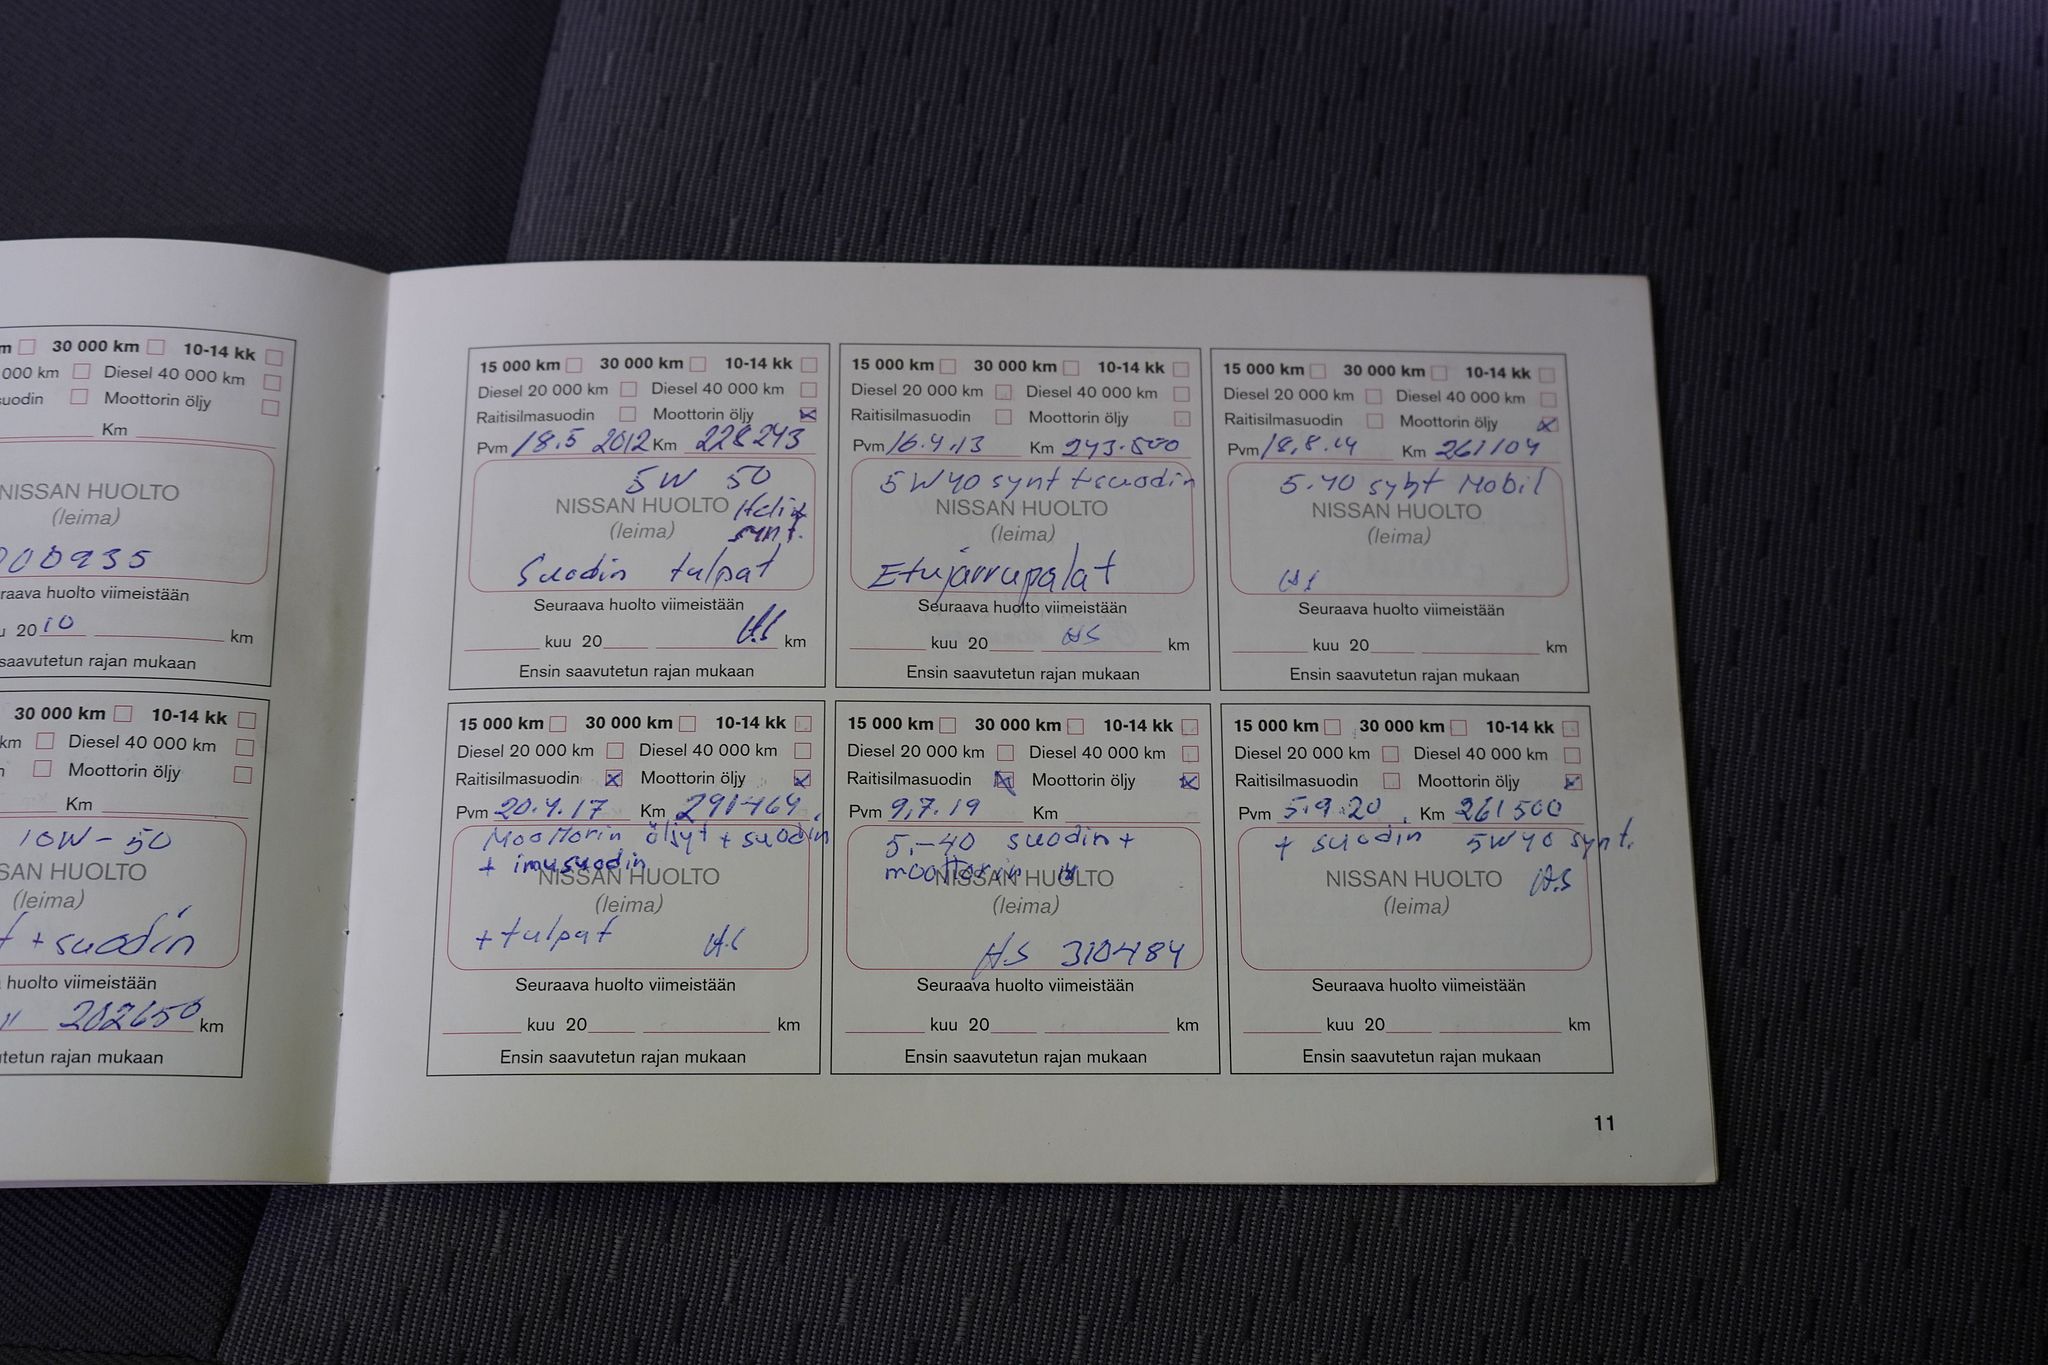 m 30 000 km 10-14 kk
000 km Diesel 40 000 km
suodin Moottorin öljy
Km
NISSAN HUOLTO
(leima)
000935
raava huolto viimeistään
u 2010 km
saavutetun rajan mukaan
30 000 km 10-14 kk
km Diesel 40 000 km
n Moottorin öljy
Km
10W-50
SAN HUOLTO
(leima)
t + suodin
huolto viimeistään
11 202650 km
utetun rajan mukaan
15 000 km 30 000 km 10-14 kk
Diesel 20 000 km Diesel 40 000 km
Raitisilmasuodin Moottorin öljy
Pvm 18.5 2012 Km 228243
5W 50
NISSAN HUOLTO Helix
(leima) synt.
Suodin tulpat
Seuraava huolto viimeistään
kuu 20 H.S km
Ensin saavutetun rajan mukaan
15 000 km 30 000 km 10-14 kk
Diesel 20 000 km Diesel 40 000 km
Raitisilmasuodin Moottorin öljy
Pvm 16.4.13 Km 243.500
5W40 synt + suodin
NISSAN HUOLTO
(leima)
Etujarrupalat
Seuraava huolto viimeistään
kuu 20 HS km
Ensin saavutetun rajan mukaan
15 000 km 30 000 km 10-14 kk
Diesel 20 000 km Diesel 40 000 km
Raitisilmasuodin Moottorin öljy
Pvm 18.8.14 Km 261104
5.40 synt Mobil
NISSAN HUOLTO
(leima)
HS
Seuraava huolto viimeistään
kuu 20 km
Ensin saavutetun rajan mukaan
15 000 km 30 000 km 10-14 kk
Diesel 20 000 km Diesel 40 000 km
Raitisilmasuodin Moottorin öljy
Pvm 20.4.17 Km 291464
Moottorin öljyt + suodin
+ imusuodin
NISSAN HUOLTO
(leima)
+ tulpat H.S
Seuraava huolto viimeistään
kuu 20 km
Ensin saavutetun rajan mukaan
15 000 km 30 000 km 10-14 kk
Diesel 20 000 km Diesel 40 000 km
Raitisilmasuodin Moottorin öljy
Pvm 9.7.19 Km
5.-40 suodin +
moottorin
NISSAN HUOLTO
(leima)
HS 310484
Seuraava huolto viimeistään
kuu 20 km
Ensin saavutetun rajan mukaan
15 000 km 30 000 km 10-14 kk
Diesel 20 000 km Diesel 40 000 km
Raitisilmasuodin Moottorin öljy
Pvm 5.9.20 Km 261500
+ suodin 5W40 synt.
NISSAN HUOLTO H.S
(leima)
Seuraava huolto viimeistään
kuu 20 km
Ensin saavutetun rajan mukaan
11